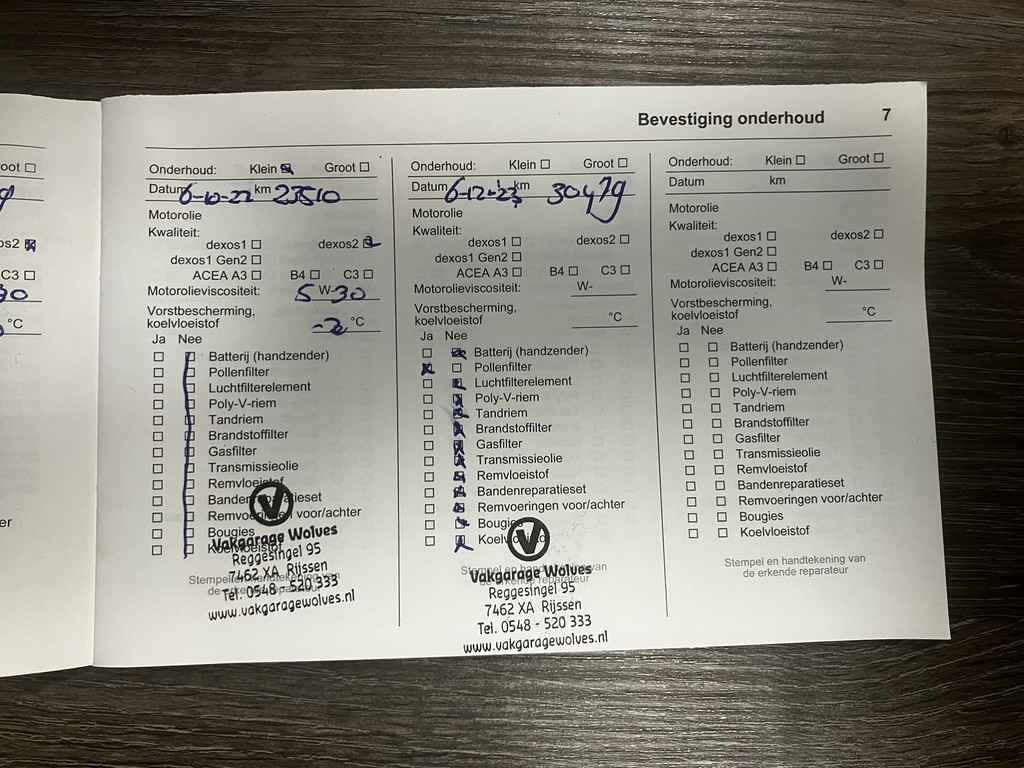 Bevestiging onderhoud 7
oot
os2
C3
30
°C
er
Onderhoud: Klein Groot
Datum 6-10-22 km 23510
Motorolie
Kwaliteit:
dexos1 dexos2
dexos1 Gen2
ACEA A3 B4 C3
Motorolieviscositeit: 5 W-30
Vorstbescherming,
koelvloeistof °C
Ja Nee
Batterij (handzender)
Pollenfilter
Luchtfilterelement
Poly-V-riem
Tandriem
Brandstoffilter
Gasfilter
Transmissieolie
Remvloeistof
Bandenreparatieset
Remvoeringen voor/achter
Bougies
Koelvloeistof
Stempel en handtekening van
de erkende reparateur
Vakgarage Wolves
Reggesingel 95
7462 XA Rijssen
Tel. 0548 - 520 333
www.vakgaragewolves.nl
Onderhoud: Klein Groot
Datum 6-12-23 km 30479
Motorolie
Kwaliteit:
dexos1 dexos2
dexos1 Gen2
ACEA A3 B4 C3
Motorolieviscositeit: W-
Vorstbescherming,
koelvloeistof °C
Ja Nee
Batterij (handzender)
Pollenfilter
Luchtfilterelement
Poly-V-riem
Tandriem
Brandstoffilter
Gasfilter
Transmissieolie
Remvloeistof
Bandenreparatieset
Remvoeringen voor/achter
Bougies
Koelvloeistof
Stempel en handtekening van
de erkende reparateur
Vakgarage Wolves
Reggesingel 95
7462 XA Rijssen
Tel. 0548 - 520 333
www.vakgaragewolves.nl
Onderhoud: Klein Groot
Datum km
Motorolie
Kwaliteit:
dexos1 dexos2
dexos1 Gen2
ACEA A3 B4 C3
Motorolieviscositeit: W-
Vorstbescherming,
koelvloeistof °C
Ja Nee
Batterij (handzender)
Pollenfilter
Luchtfilterelement
Poly-V-riem
Tandriem
Brandstoffilter
Gasfilter
Transmissieolie
Remvloeistof
Bandenreparatieset
Remvoeringen voor/achter
Bougies
Koelvloeistof
Stempel en handtekening van
de erkende reparateur